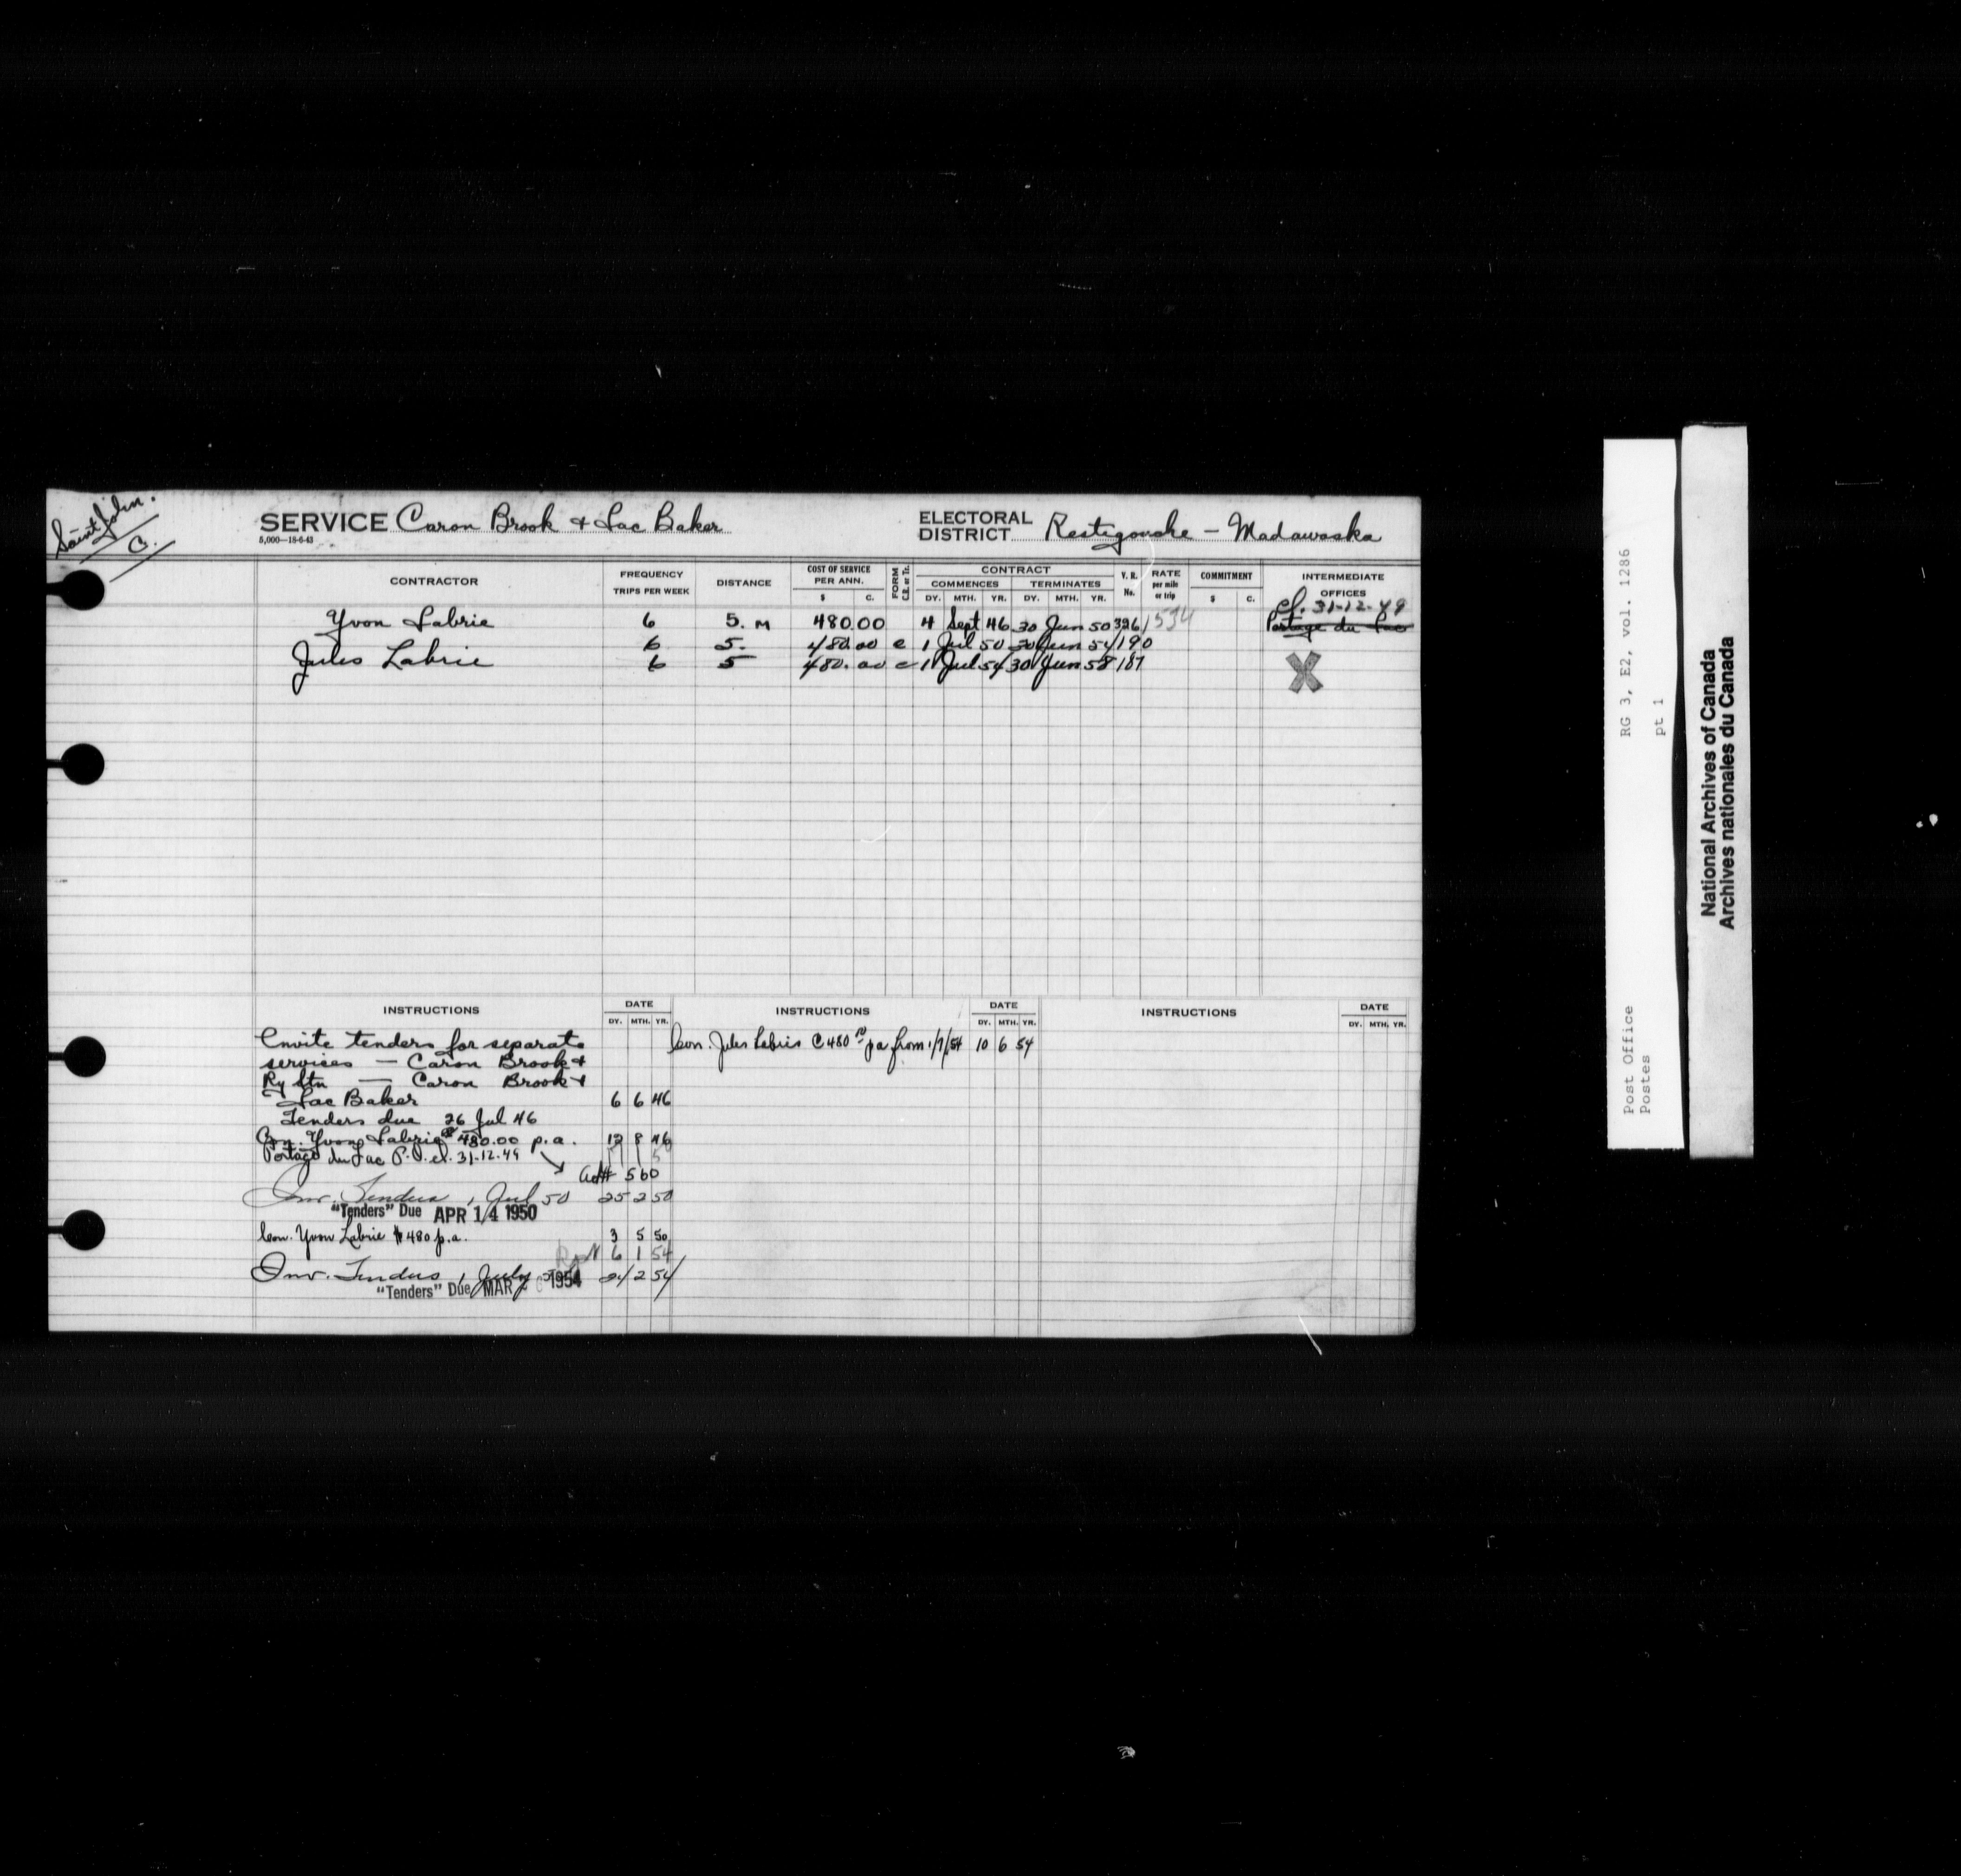 Saint John.
C.
SERVICE Caron Brook & Lac Baker
5,000—18-6-43
ELECTORAL DISTRICT Restigouche - Madawaska
CONTRACTOR FREQUENCY TRIPS PER WEEK DISTANCE COST OF SERVICE PER ANN. $ C. FORM C.R. or Tr. CONTRACT COMMENCES DY. MTH. YR. TERMINATES DY. MTH. YR. V. R. No. RATE per mile or trip COMMITMENT $ C. INTERMEDIATE OFFICES
cl. 31-12-49
Yvon Labrie 6 5. M 480.00 4 Sept 46 30 Jun 50 326 1534 Portage du Lac
6 5. 480.00 c 1 Jul 50 30 Jun 54 190
Jules Labrie 6 5 480.00 c 1 Jul 54 30 Jun 58 187
X
INSTRUCTIONS DATE DY. MTH. YR. INSTRUCTIONS DATE DY. MTH. YR. INSTRUCTIONS DATE DY. MTH. YR.
Invite tenders for separate
services — Caron Brook &
Ry Stn — Caron Brook &
Lac Baker 6 6 46
Tenders due 26 Jul 46
Con. Yvon Labrie @ 480.00 p.a. 12 8 46
Portage du Lac P.O. cl. 31-12-49
Ad# 560
Inv. Tenders, Jul 50 25 2 50
"Tenders" Due APR 14 1950
Con. Yvon Labrie $480 p.a. 3 5 50
6 1 54
Inv. Tenders, July 54 2 54
"Tenders" Due MAR 1954
Con. Jules Labrie @ 480 pa from 1/7/54 10 6 54
Post Office RG 3, E2, vol. 1286
Postes pt 1
National Archives of Canada
Archives nationales du Canada